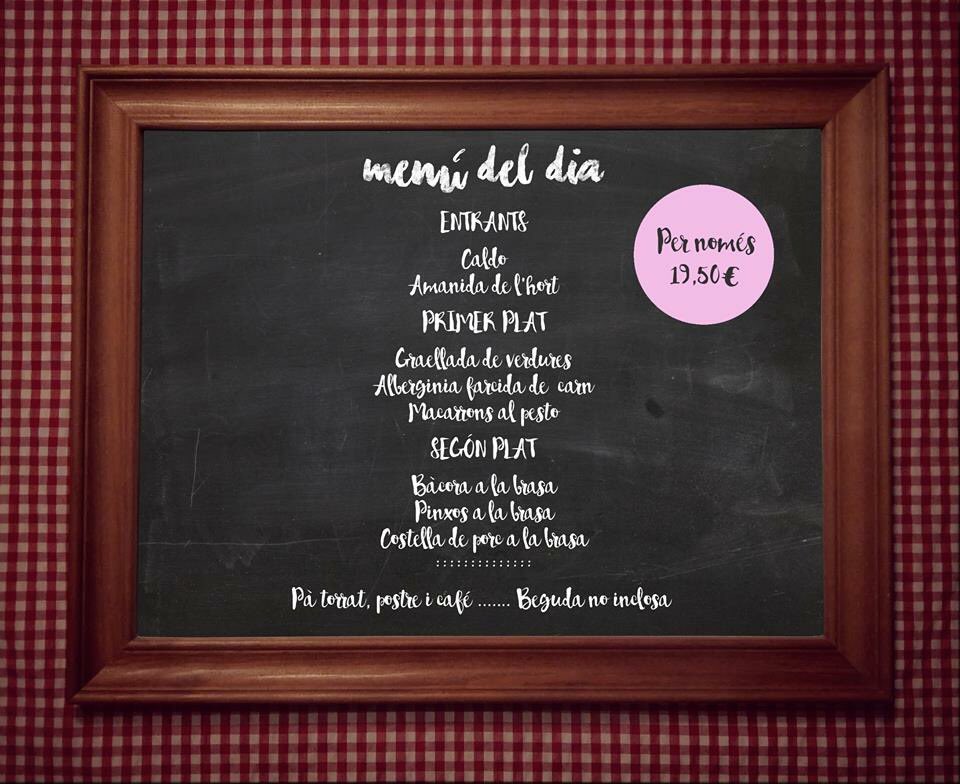 menú del dia
ENTRANTS
Caldo
Amanida de l'hort
PRIMER PLAT
Graellada de verdures
Alberginia farcida de carn
Macarrons al pesto
SEGÓN PLAT
Bàcora a la brasa
Pinxos a la brasa
Costella de porc a la brasa
::::::::::::::
Pà torrat, postre i café ....... Beguda no inclosa
Per només
19,50€